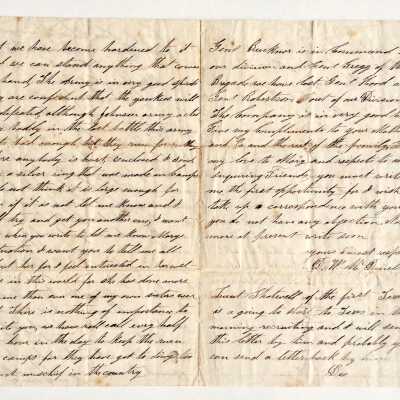 we have become hardened to it
we can stand anything that comes
hand, The Army is in very good spirits
are confident that the yankees will
defeated, although Johnsons army acted
badly in the last battle this army
bad enough but they run for the
any body is hurt, enclosed I send
a silver ring that was made in camps
not think it is large enough for
if it is not let me know and I
try and get you another one, I want
when you write to let me know Mary
I want you to tell me all
her for I feel interested in her wel
in this world for she has done more
me than one of my own sisters ever
There is nothing of importance to
you, we have roll call every half
hour in the day to keep the men
camps for they have got to doing so
mischief in the country
Genl Buckner is in Command
our division and Genl Gregg of the
Brigade we have lost Genl Hood a
Genl Robertson out of our Division
The company is in very good h
Give my compliments to your Mother
and Pa and the rest of the family,
my love to Alsey and respects to a
inquiring Friends, you must write
me the first opportunity for I wish
to keep up a correspondence with you
you do not have any objection,
more at present write soon
your sincere
B. W. Mc Daniel
Lieut Shotwell of the first Texas
is a going to start to Texas in the
morning recruiting and I will send
this letter by him and probably you
can send a letter back by him